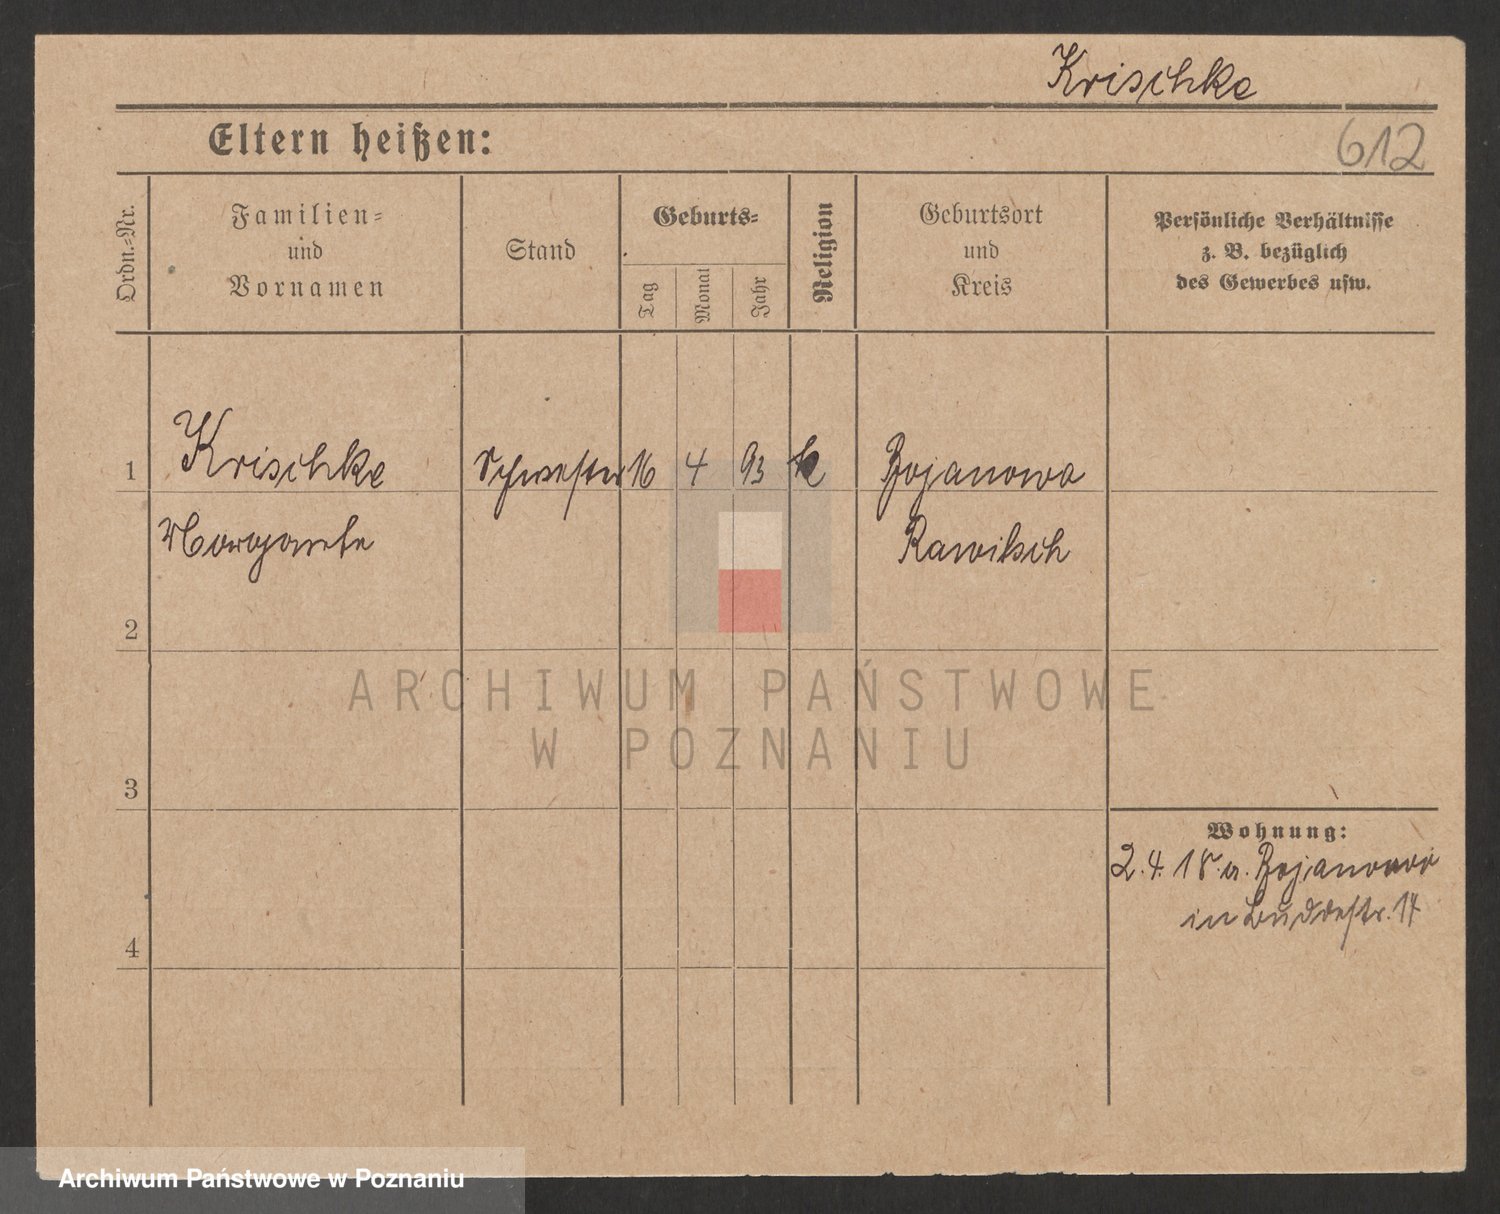 Krischke
Eltern heißen:
612
Ordn.-Nr.
Familien-
und
Vornamen
Stand
Geburts-
Tag
Monat
Jahr
Religion
Geburtsort
und
Kreis
Persönliche Verhältnisse
z. B. bezüglich
des Gewerbes usw.
1 Krischke Schwester 16 4 93 k Bojanowo
Margarete Rawitsch
2
ARCHIWUM PAŃSTWOWE
W POZNANIU
3
Wohnung:
2.4.18. a. Bojanowo
in Buddestr. 17
4
Archiwum Państwowe w Poznaniu